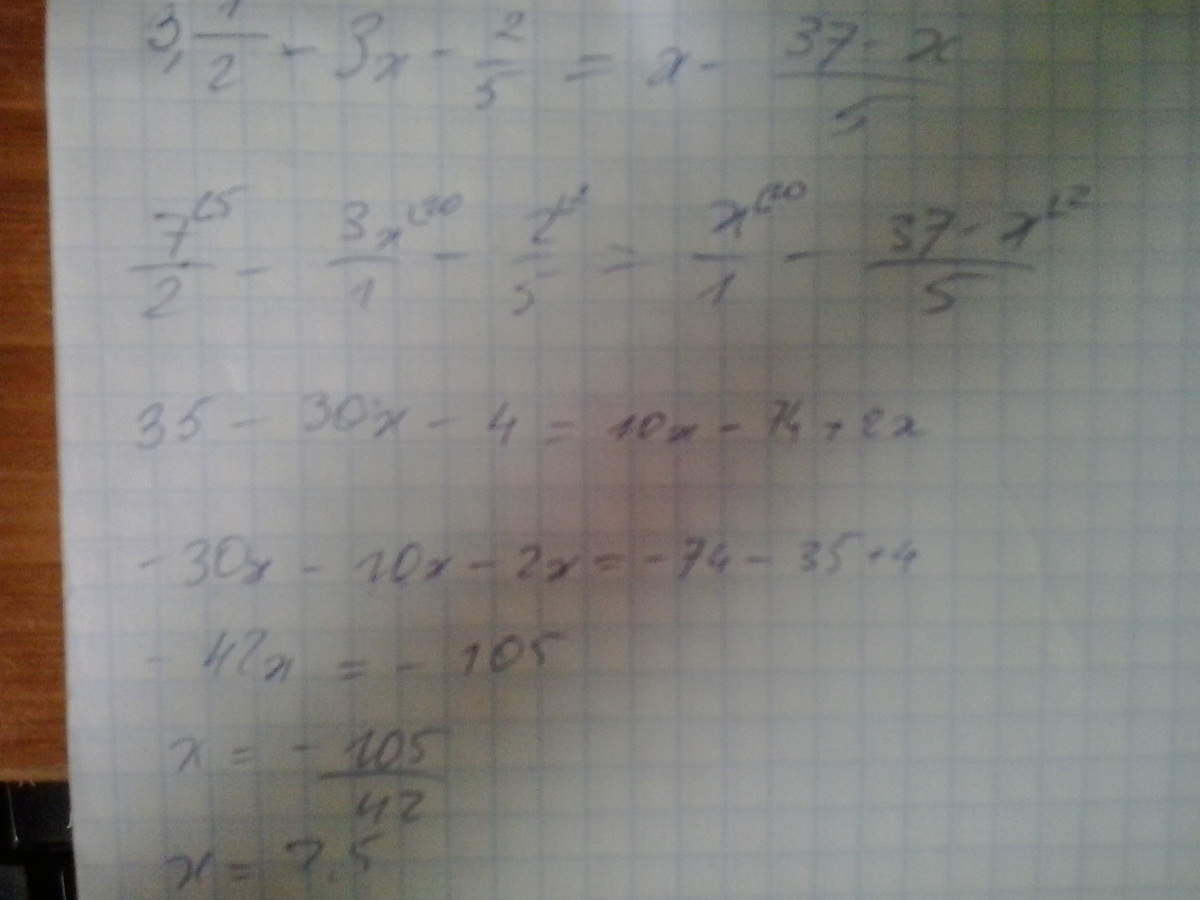 3 1/2 - 3x - 2/5 = x - (37 - x)/5
7⁽⁵/2 - 3x⁽¹⁰/1 - 2⁽²/5 = x⁽¹⁰/1 - (37 - x)⁽²/5
35 - 30x - 4 = 10x - 74 + 2x
- 30x - 10x - 2x = - 74 - 35 + 4
- 42x = - 105
x = - 105/42
x = 2,5